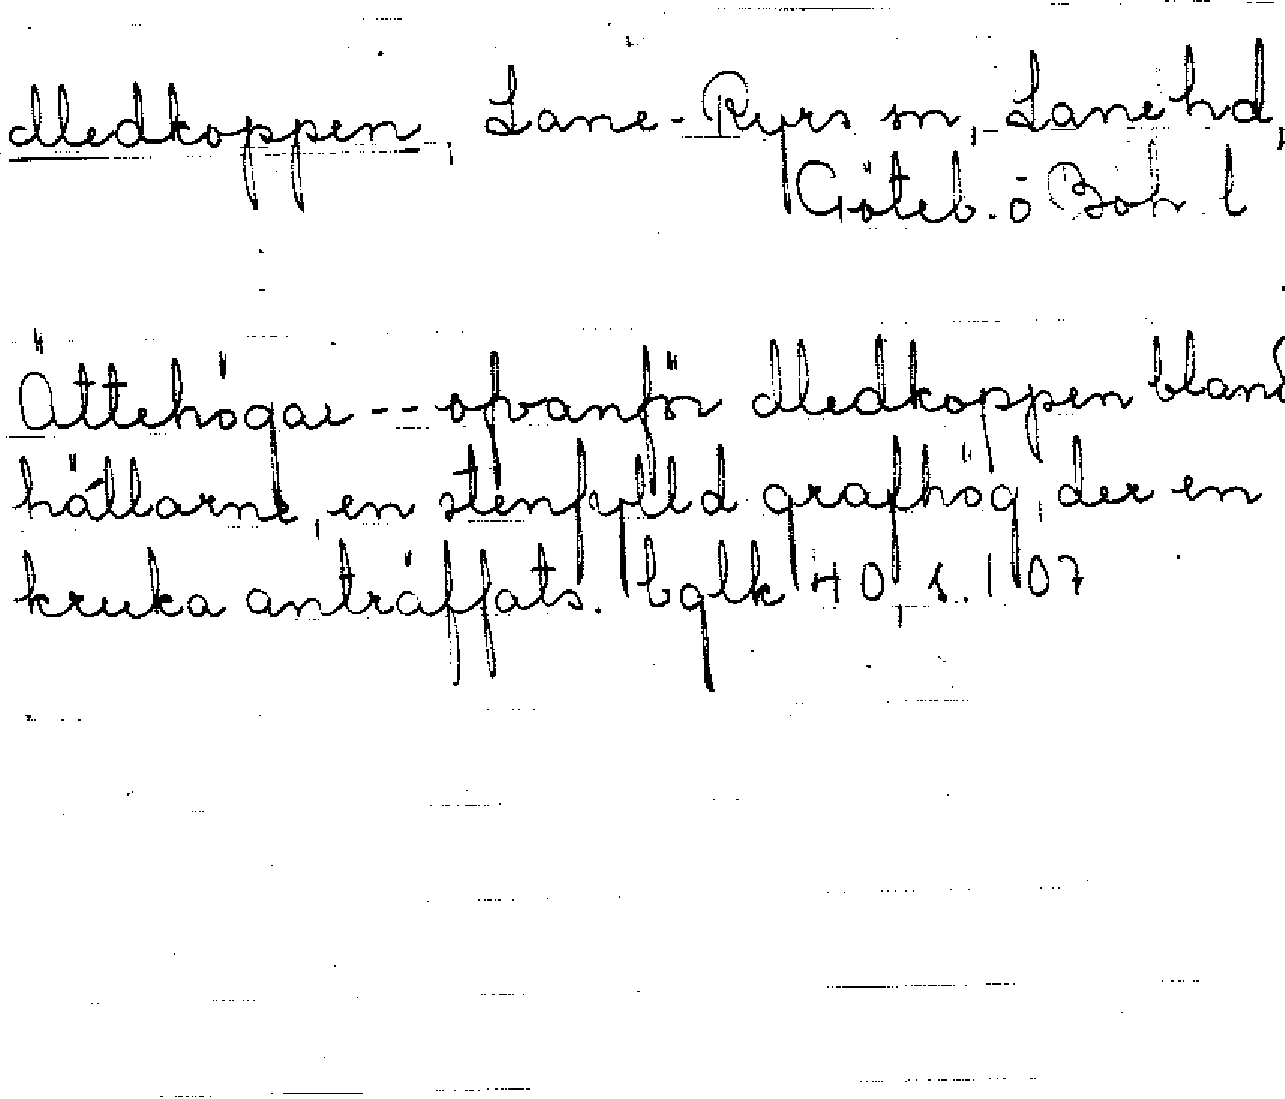 Medkoppen, Lane-Ryrs sn, Lane hd,
Göteb. o Boh l
Ättehögar -- ofvanför Medkoppen bland
hällarne, en stenfylld grafhög, der en
kruka anträffats. bglk 40, s. 107